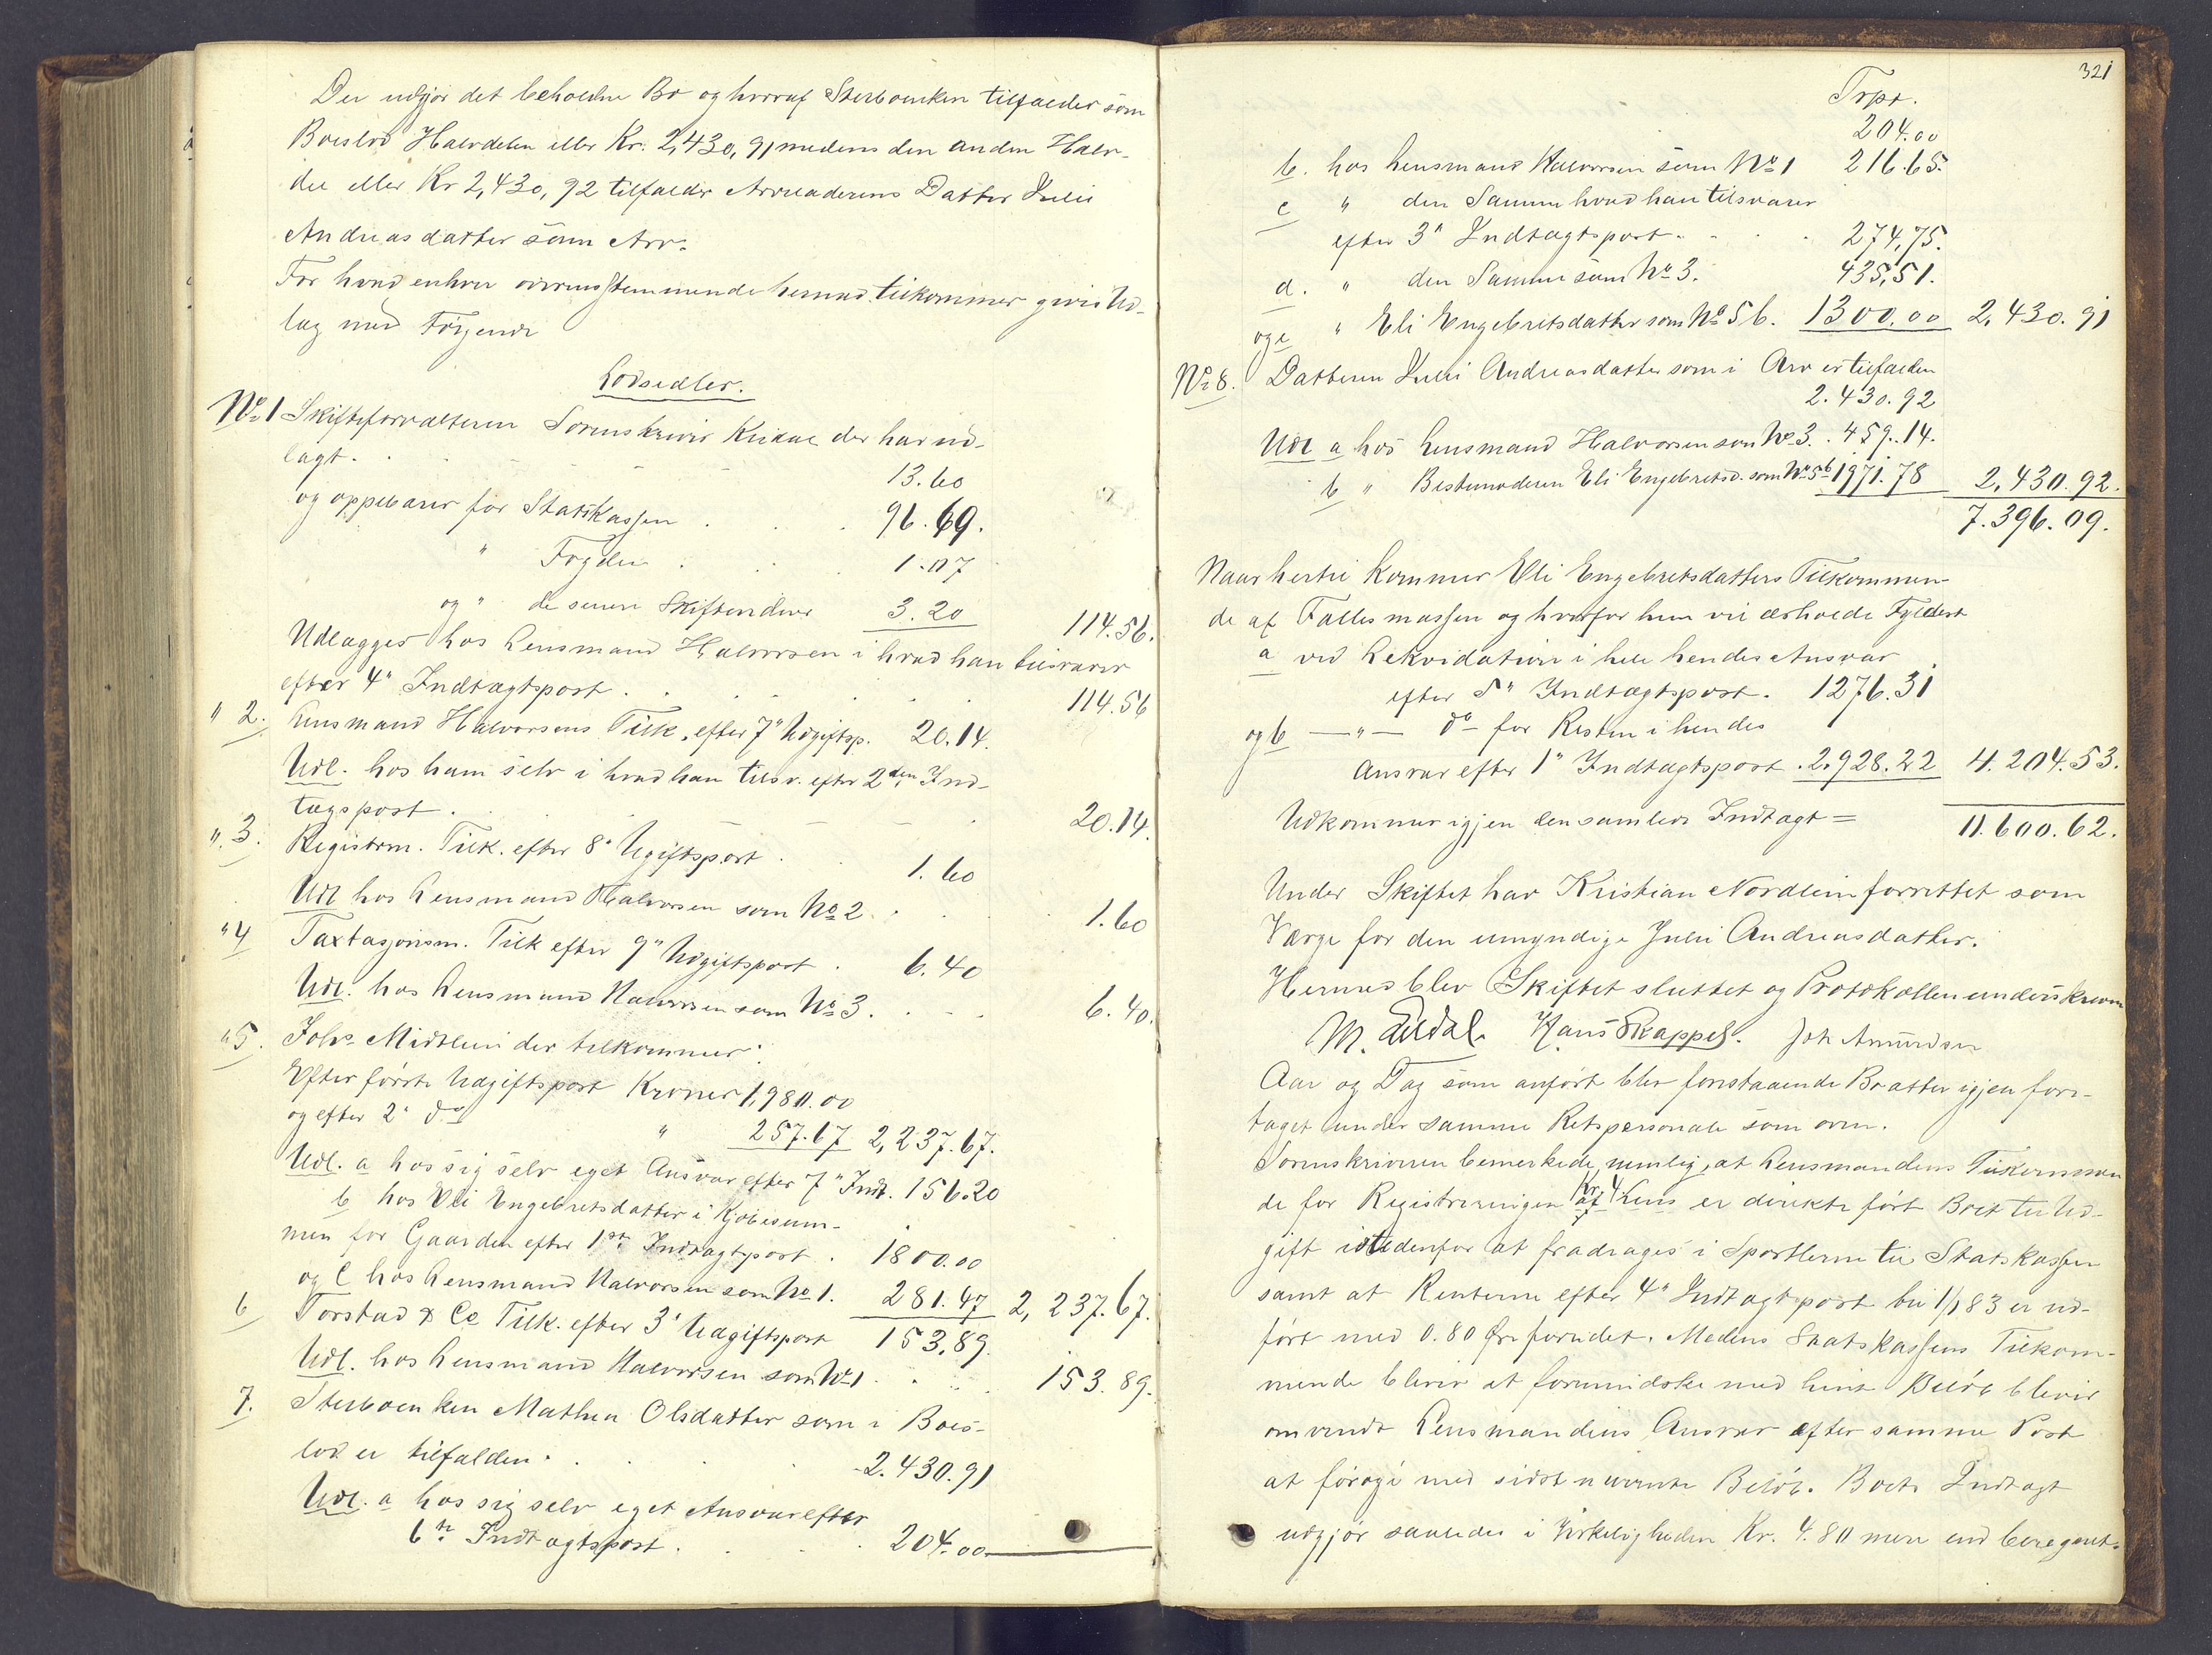 Der udgjør det beholdne Bo og hvoraf Sterboenken tilfalder som
Boeslod Halvdelen eller Kr. 2,430,91 medens den anden Halv-
del eller Kr 2,430,92 tilfalder Arveladerens Datter Julii
Andreasdatter som Arv.
For hvad enhver overensstemmende hermed tilkommer gives Ud-
læg med Følgende
Lodsedler.
No 1 Skifteforvalteren Sorenskriver der har ud-
lagt. 13.60
og oppebærer for Statskassen 96.69.
" Fogden 1.07
og " de senere 3.20 114.56.
Udlægges hos Lensmand Halvorsen i hvad han tilsvarer
efter 4" Indtægtspost. 114.56
" 2. Lensmand Halvorsens Tilk. efter 7" Udgiftsp. 20.14.
Udl. hos ham selv i hvad han tilsv. efter 2den Ind-
tægspost. 20.14.
" 3. Registrm. Tilk. efter 8" Ugiftspost. 1.60
Udl hos Lensmand Halvorsen som No 2. 1.60
" 4 Taxtasjonsm. Tilk efter 9" Udgiftspost. 6.40
Udl. hos Lensmand Halvorsen som No 3. 6.40.
" 5. Johs Midtlein der tilkommer:
Efter første Udgiftspost Kroner 1,980.00
og efter 2" do " 257.67 2,237.67.
Udl. a hos sig selv eget Ansvar efter 7" Indt. 156.20
b hos Eli Engebretsdatter i Kjøbesum-
men for Gaarden efter 1ste Indtægtspost. 1800.00
og c hos Lensmand Halvorsen som No 1. 281.47 2,237.67.
6 Torstad & Co Tilk. efter 3" Udgiftspost 153,89.
Udl. hos Lensmand Halvorsen som No 1. 153.89.
7. Sterboenken Mathea Olsdatter som i Boes-
lod er tilfalden. 2.430.91
Udl. a hos sig selv eget Ansvar efter
6te Indtægtspost. 204.00
321
Trpt.
204.00
b. hos Lensmand Halvorsen som No 1 216.65.
c " den Samme hvad han tilsvarer
efter 3" Indtægtspost. 274,75.
d. " den Samme som No 3. 435,51.
og e " Eli Engebretsdatter som No 5 b. 1300.00 2,430.91
No 8. Datteren Julii Andreasdatter som i Arv er tilfalden
2.430.92
Udl a hos Lensmand Halvorsen som No 3. 459.14.
b " Bestemoderen Eli Engebretsd. som No 5b 1971.78 2,430.92.
7.396.09.
Naar hertil kommer Eli Engebretsdatters Tilkommen-
de af Fællesmassen og hvorfor hun vil erholde Fyldest
a ved Lekvidation i hele hendes Ansvar
efter 5" Indtægtspost. 1276.31
og b — " — do for Resten i hendes
Ansvar efter 1" Indtægtspost. 2.928.22 4.204.53.
Udkommer igjen den samlede Indtægt = 11.600.62.
Under Skiftet har Kristian Nordlein forrettet som
Værge for den umyndige Julii Andreasdatter.
Hermed blev Skiftet sluttet og Protokollen underskreven
M. Hans Rappel. Joh Amundsen
Aar og Dag som anført blev foranstaaende Bo atter igjen fore-
taget under samme Retspersonale som oven.
Sorenskriveren bemerkede, nemlig, at Lensmandens Tilkommen
de for Registreringen Kr 4 er direkte ført Boet til Ud-
gift istedenfor at fradrages i Sportlerne til Statskassen
samt at Renterne efter 4" Indtægtspost til 1/1 83 er ud-
ført med 0.80 Øre forudet. Medens Statskassens Tilkom-
mende bliver at formindske med hint Beløb bliver
omvendt Lensmandens Ansvar efter samme Post
at forøge med sidst nævnte Beløb. Boets Indtægt
udgjør saaledes i Virkeligheden Kr. 4.80 mere end beregnet.